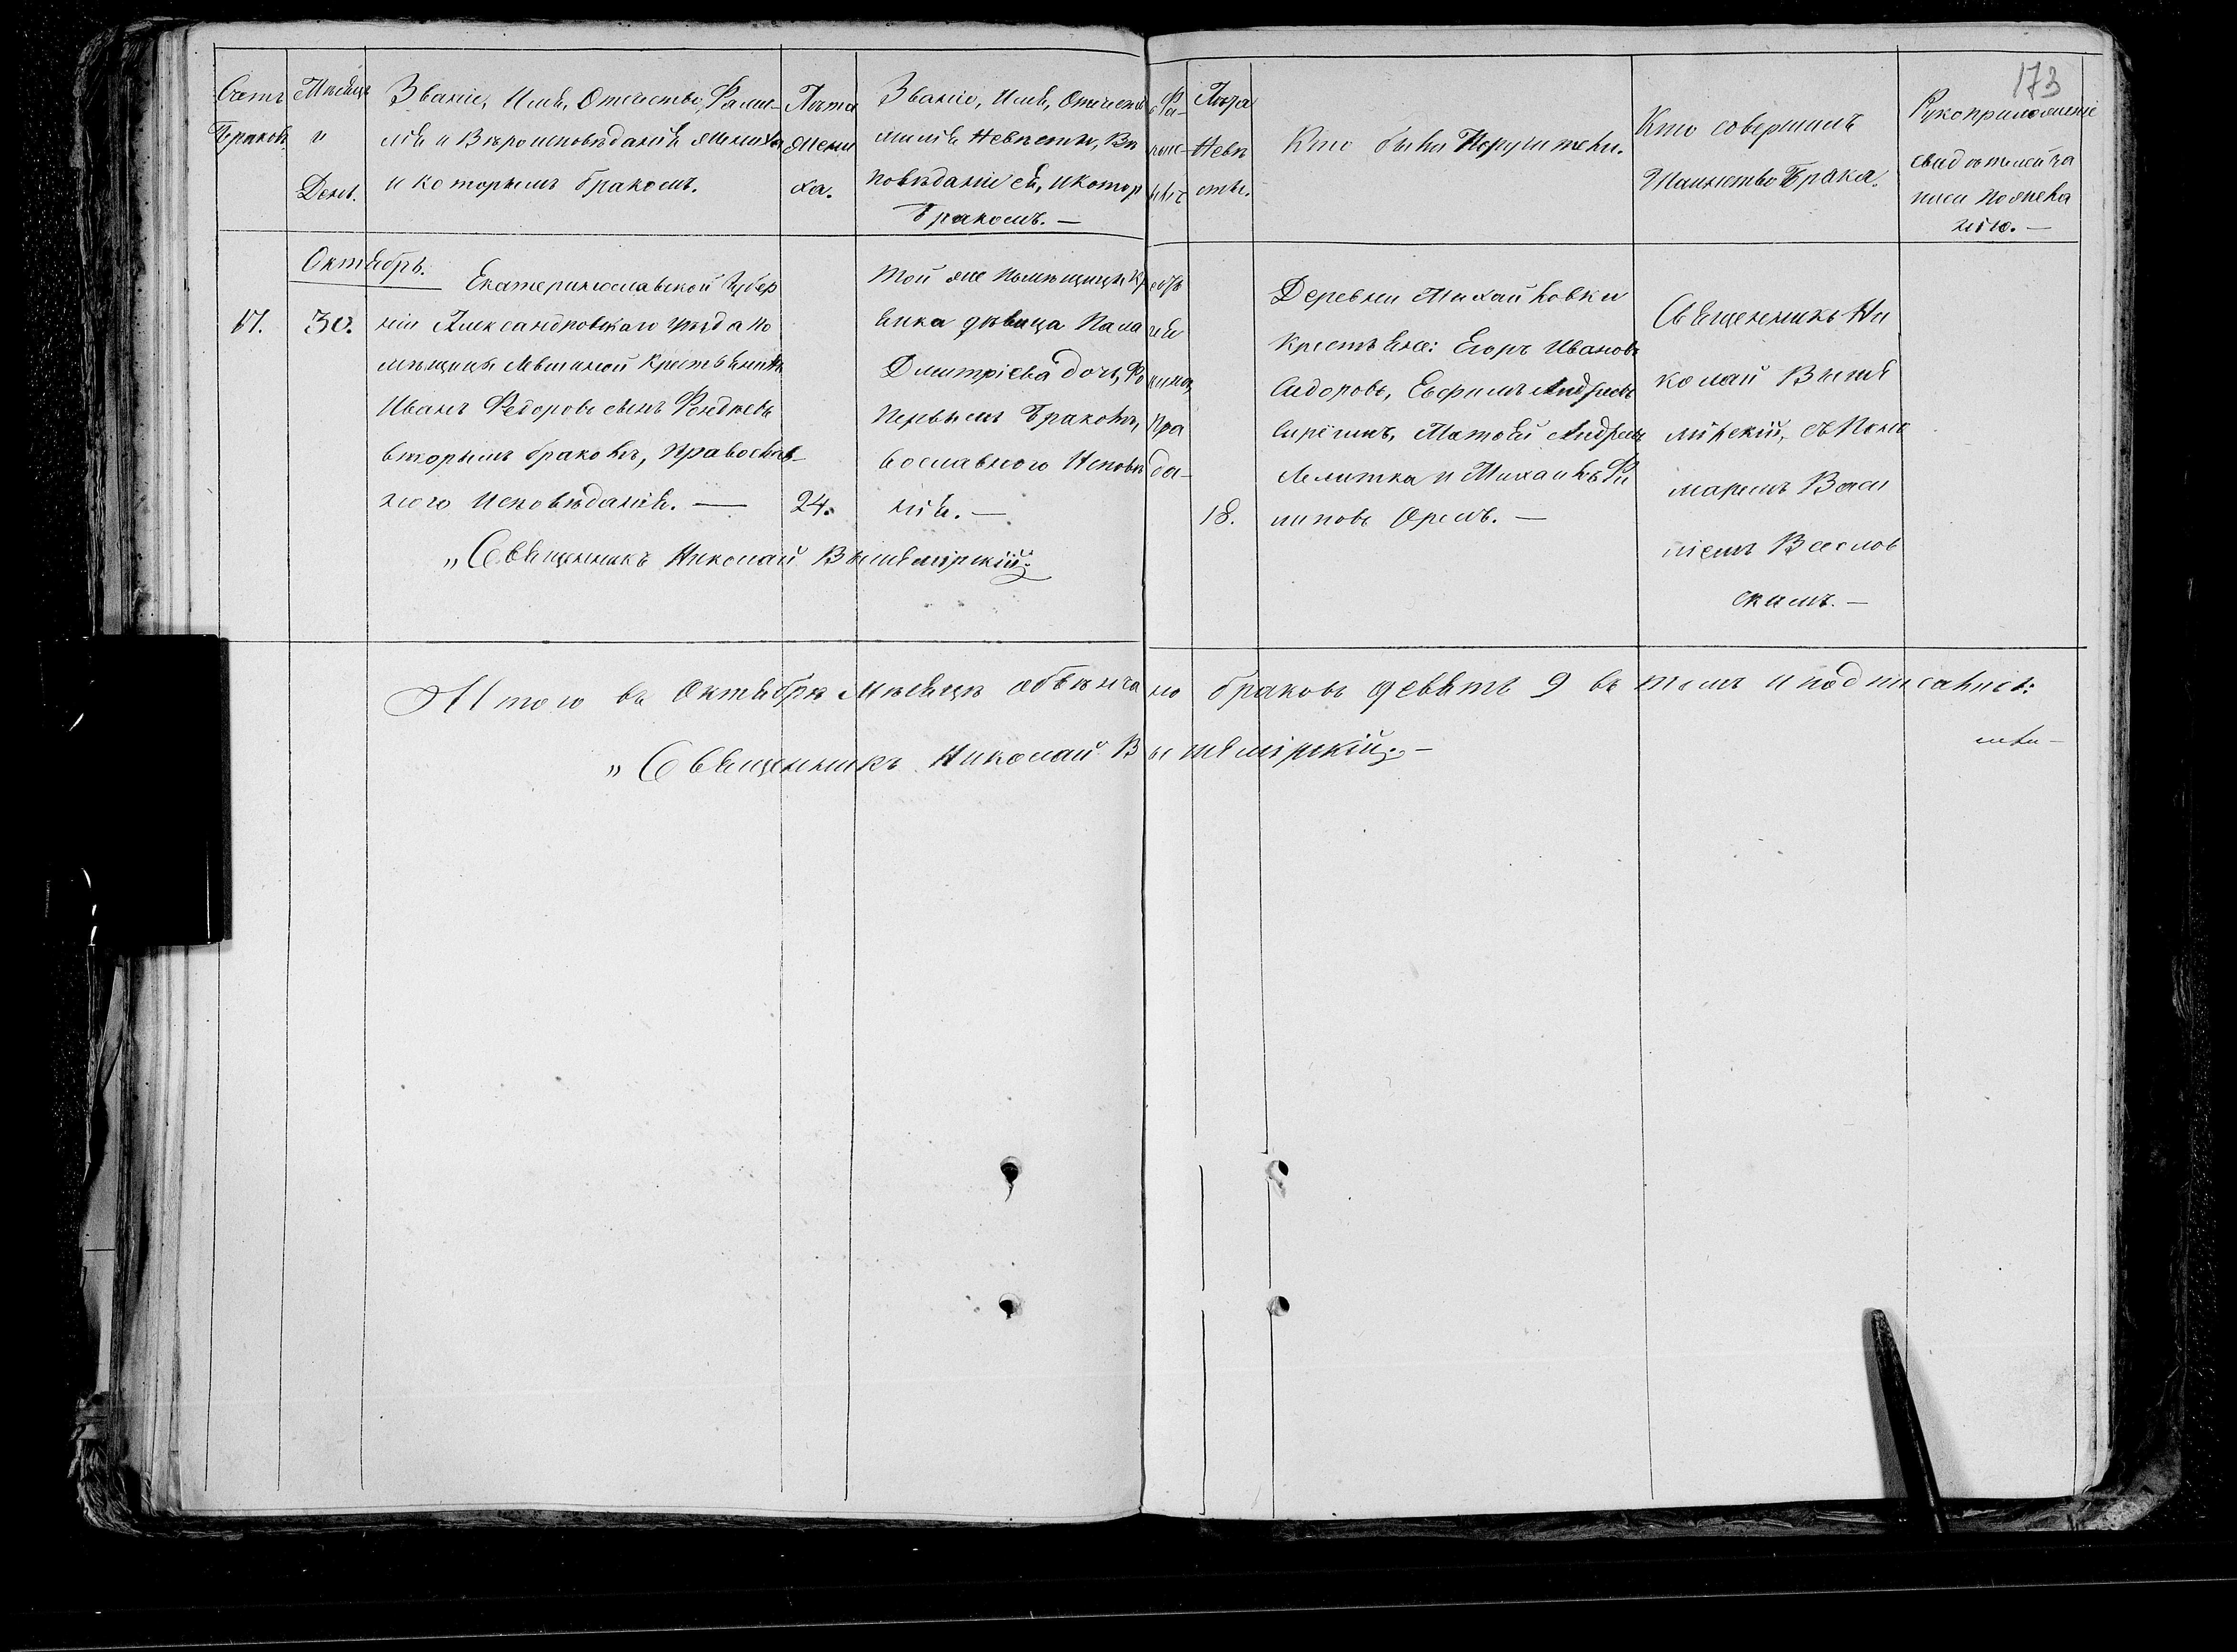 173
Счетъ Браковъ.
Мѣсяцъ и День.
Званіе, Имя, Отчество, Фами-
лія и Вѣроисповѣданія Жениха
и которымъ бракомъ.
Лѣта Жени
ха.
Званіе, Имя, Отчество Фа-
милія Невѣсты, Вѣроис-
повѣданіе ея, и котор
Бракомъ. —
Лѣта Невѣ
сты.
Кто были Поручители.
Кто совершалъ
Таинство Брака.
Рукоприложеніе
свидѣтелей за
писи по жела
нію. —
Октябрь.
17.
30.
Екатеринославской Губер
ніи Александровскаго уѣзда по
мѣщицы Крестьянинъ
Иванъ Федоровъ сынъ
вторымъ бракомъ, Православ-
ного Исповѣданія. —
24.
Той же помѣщицы Кресть
янка дѣвица Палагея
Дмитріева дочь,
первымъ Бракомъ, Пра
вославного Исповѣда-
нія. —
18.
Деревни Михайловки
Крестьяне: Егоръ Ивановъ
Сидоровъ, Евфимъ Андреевъ
Матвѣй Андреевъ
и Михаилъ Фи
липовъ Орелъ. —
Священникъ Ни
колай Вышемірскій, съ Поно
маремъ Васи
ліемъ Веслов
скимъ. —
„Священникъ Николай Вышемірскій.
Итого въ Октябрѣ мѣсяцѣ обвѣнчано браковъ девять 9 въ томъ и подписались:
„Священникъ Николай Вышемірскій. —